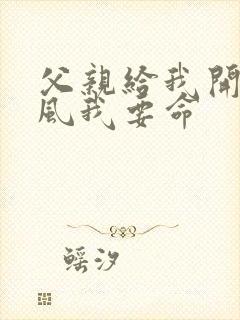 父親給我開
風我要命
鰩汐